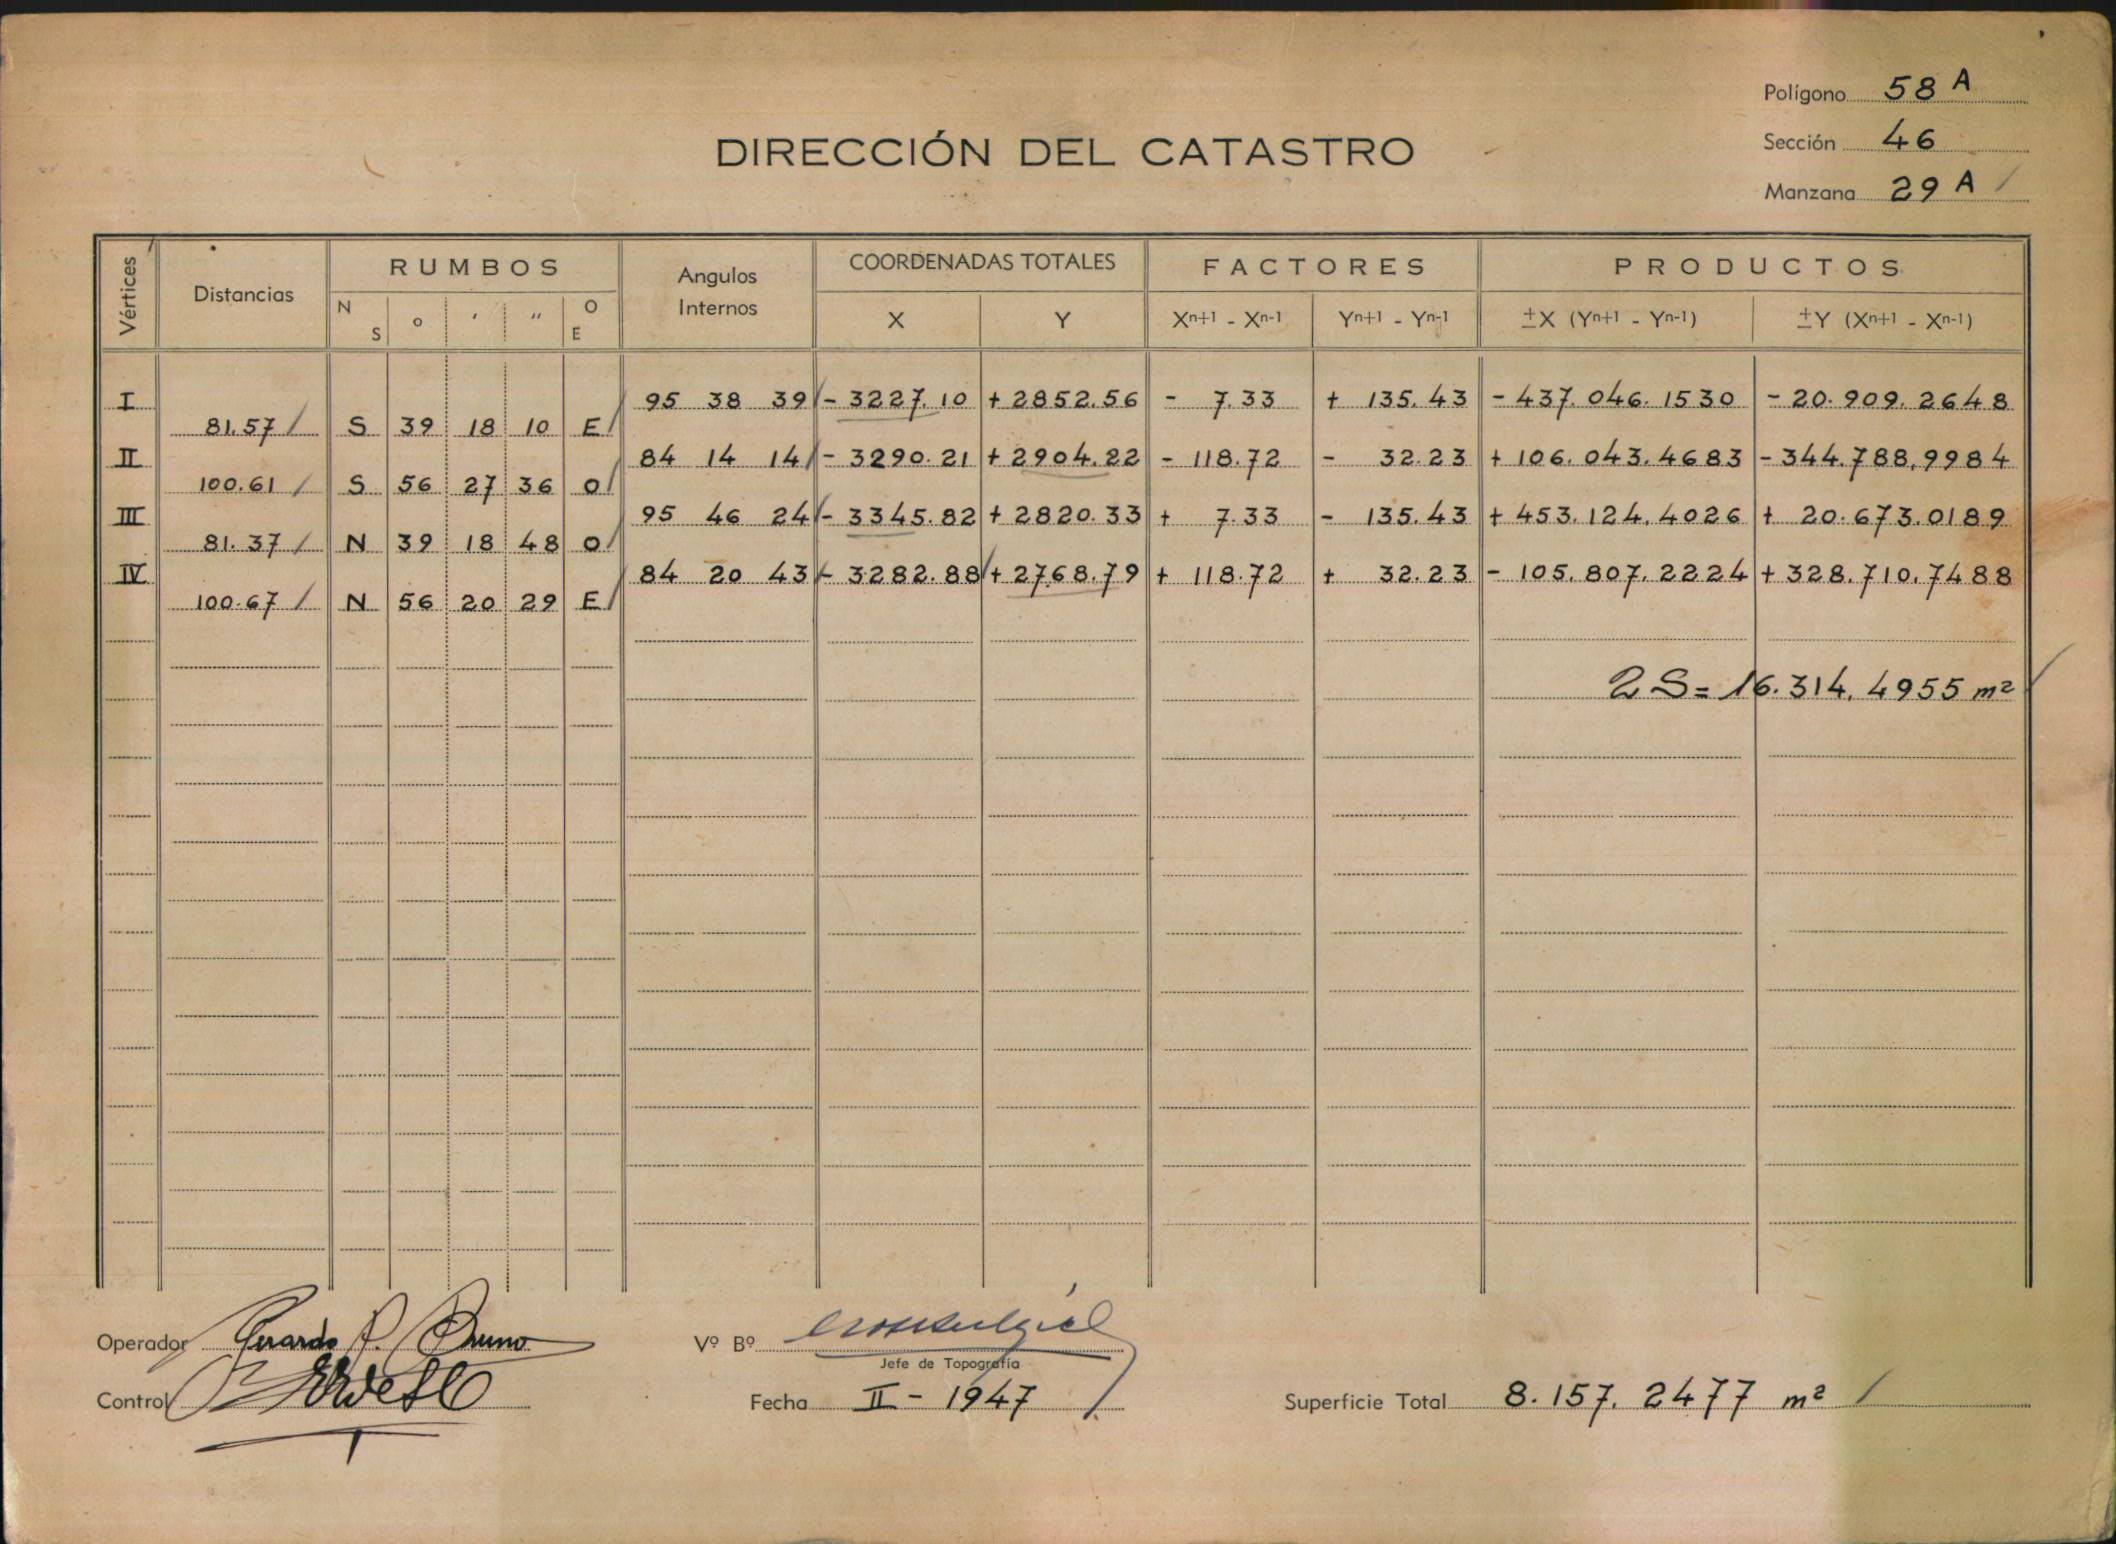 Polígono 58 A
Sección 46
Manzana 29 A
DIRECCIÓN DEL CATASTRO
Vértices Distancias RUMBOS Angulos Internos COORDENADAS TOTALES FACTORES PRODUCTOS
N S o ′ ″ O E X Y Xn+1 - Xn-1 Yn+1 - Yn-1 ±X (Yn+1 - Yn-1) ±Y (Xn+1 - Xn-1)
I 95 38 39 - 3227.10 + 2852.56 - 7.33 + 135.43 - 437.046.1530 - 20.909.2648
81.57 S 39 18 10 E
II 84 14 14 - 3290.21 + 2904.22 - 118.72 - 32.23 + 106.043.4683 - 344.788,9984
100.61 S 56 27 36 O
III 95 46 24 - 3345.82 + 2820.33 + 7.33 - 135.43 + 453.124.4026 + 20.673.0189
81.37 N 39 18 48 O
IV 84 20 43 - 3282.88 + 2768.79 + 118.72 + 32.23 - 105.807.2224 + 328.710.7488
100.67 N 56 20 29 E
2 S = 16.314.4955 m²
Operador Gerardo P. Bruno
Vº Bº
Jefe de Topografía
Control
Fecha II - 1947
Superficie Total 8.157.2477 m²